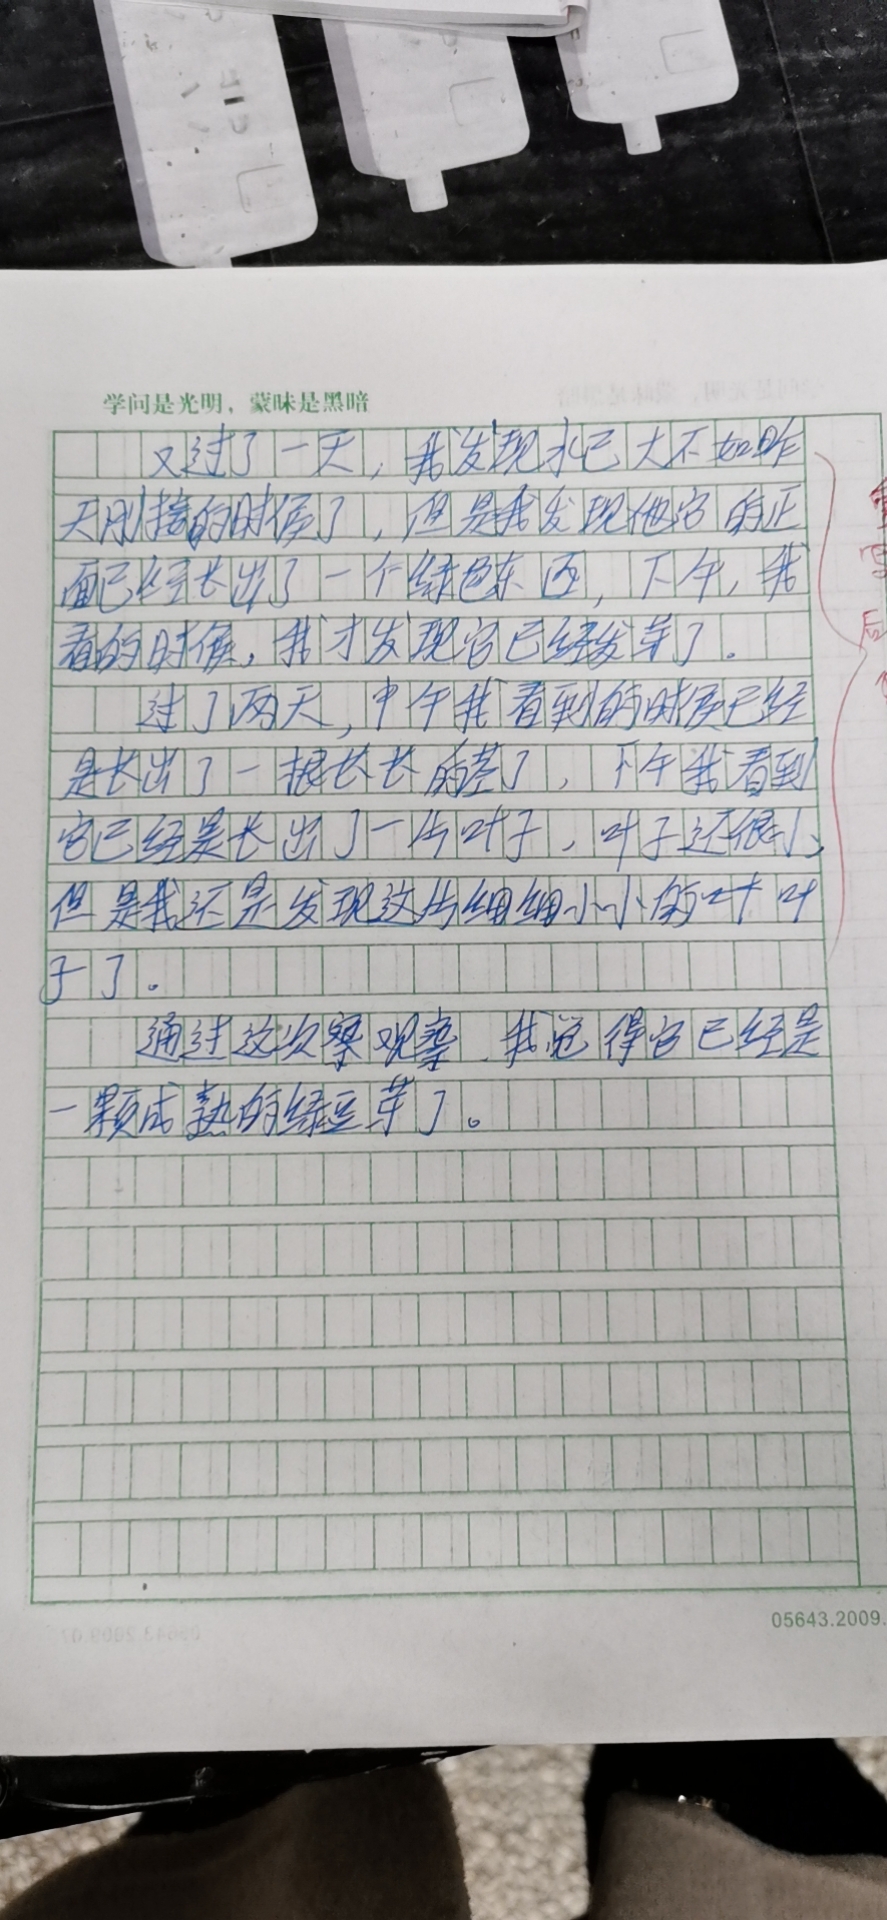 学问是光明，蒙昧是黑暗
又过了一天，我发现水已大不如昨
天刚接的时候了，但是我发现他它的正
面已经长出了一个绿色东西，下午，我
看的时候，我才发现它已经发芽了。
过了两天，中午我看到的时候已经
是长出了一根长长的茎了，下午我看到
它已经是长出了一片叶子，叶子还很小，
但是我还是发现这片细细小小的叶叶
子了。
通过这次察观察，我觉得它已经是
一颗成熟的绿豆芽了。
05643.2009.